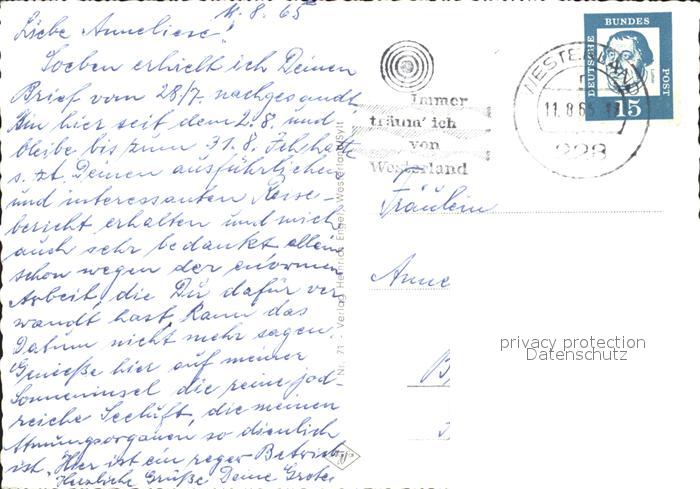 11.8.65
Liebe Anneliese!
Soeben erhielt ich Deinen
Brief vom 28/7. nachgesandt.
Bin hier seit dem 2.8. und
bleibe bis zum 31.8. Ich hatte
s. Zt. Deinen ausführlichen
und interessanten Reise-
bericht erhalten und mich
auch sehr bedankt allein
schon wegen der enormen
Arbeit, die Du dafür ver
wandt hast. Kann das
Datum nicht mehr sagen.
Genieße hier auf meiner
Sonneninsel die reine jod-
reiche Seeluft, die meinen
Atmungsorganen so dienlich
ist. Hier ist ein reger Betrieb
Herzliche Grüße Deine Grete
Nr. 71 - Verlag Heinrich Engel, Westerland/Sylt
Immer
träum' ich
von
Westerland
WESTERLAND
11.8.65
228
DEUTSCHE
BUNDES
POST
15
Fräulein
Anne
B
privacy protection
Datenschutz